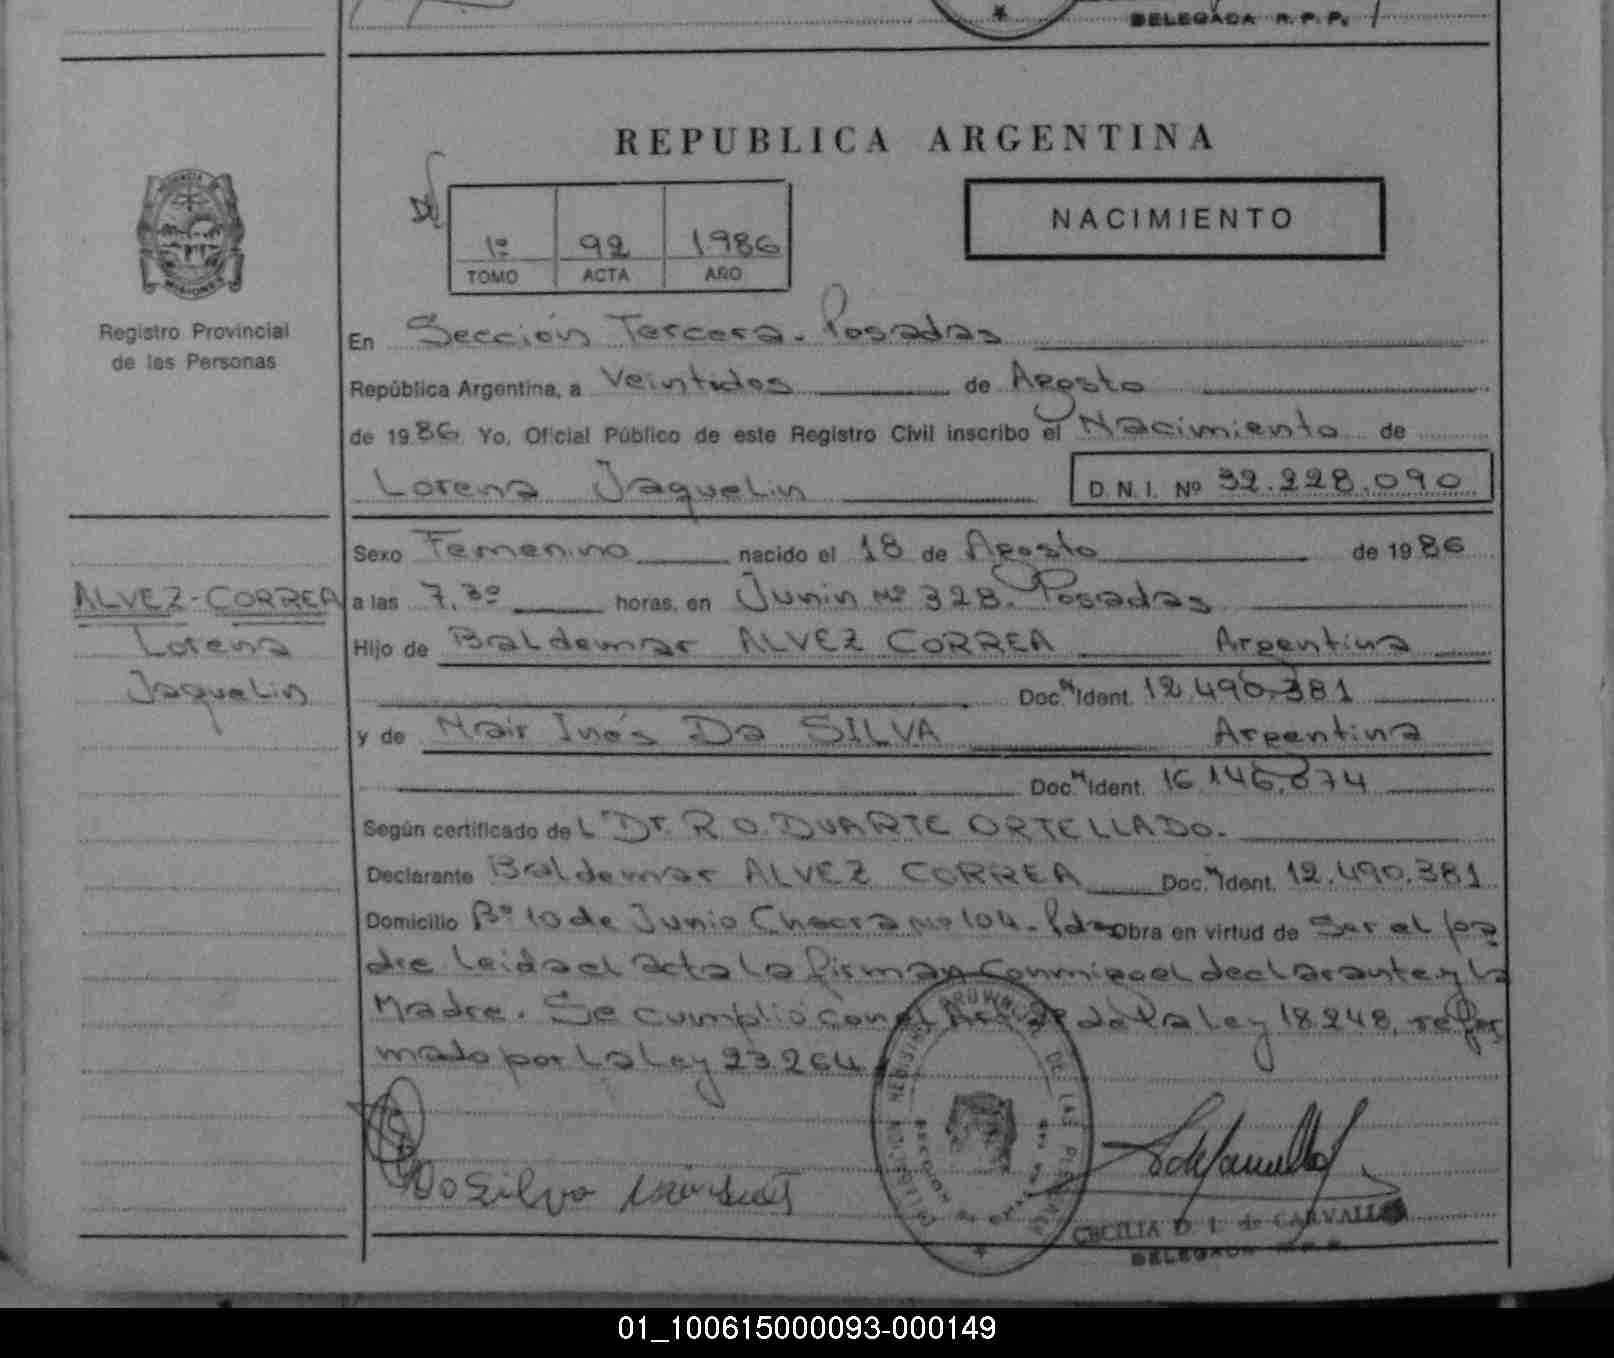 DELEGADA R.P.P.
REPUBLICA ARGENTINA
NACIMIENTO
1º 92 1986
TOMO ACTA AÑO
Registro Provincial
de las Personas
En Sección Tercera. Posadas
República Argentina, a Veintidos de Agosto
de 1986 Yo, Oficial Público de este Registro Civil inscribo el Nacimiento de
Lorena Jaquelin D.N.I. Nº 32.228.090
Sexo Femenino nacido el 18 de Agosto de 1986
ALVEZ-CORREA
Lorena
Jaquelin
a las 7,30 horas, en Junin Nº 328. Posadas
Hijo de Baldemar ALVEZ CORREA Argentina
Doc. Ident. 12.490.381
y de Nair Inés Da SILVA Argentina
Doc. Ident. 16.146.874
Según certificado del Dr. R O. DUARTE ORTELLADO.
Declarante Baldemar ALVEZ CORREA Doc. Ident. 12.490.381
Domicilio Bº 10 de Junio Chacra Nº 104. Pdas Obra en virtud de Ser el pa
dre leida el acta la firman conmigo el declarante y la
Madre. Se cumplió con el Art de la Ley 18.248, refor
mado por la Ley 23.264
Da Silva
REGISTRO PROVINCIAL DE LAS PERSONAS
CECILIA D. I. de CARVALLO
DELEGADA R.P.P.
01_100615000093-000149